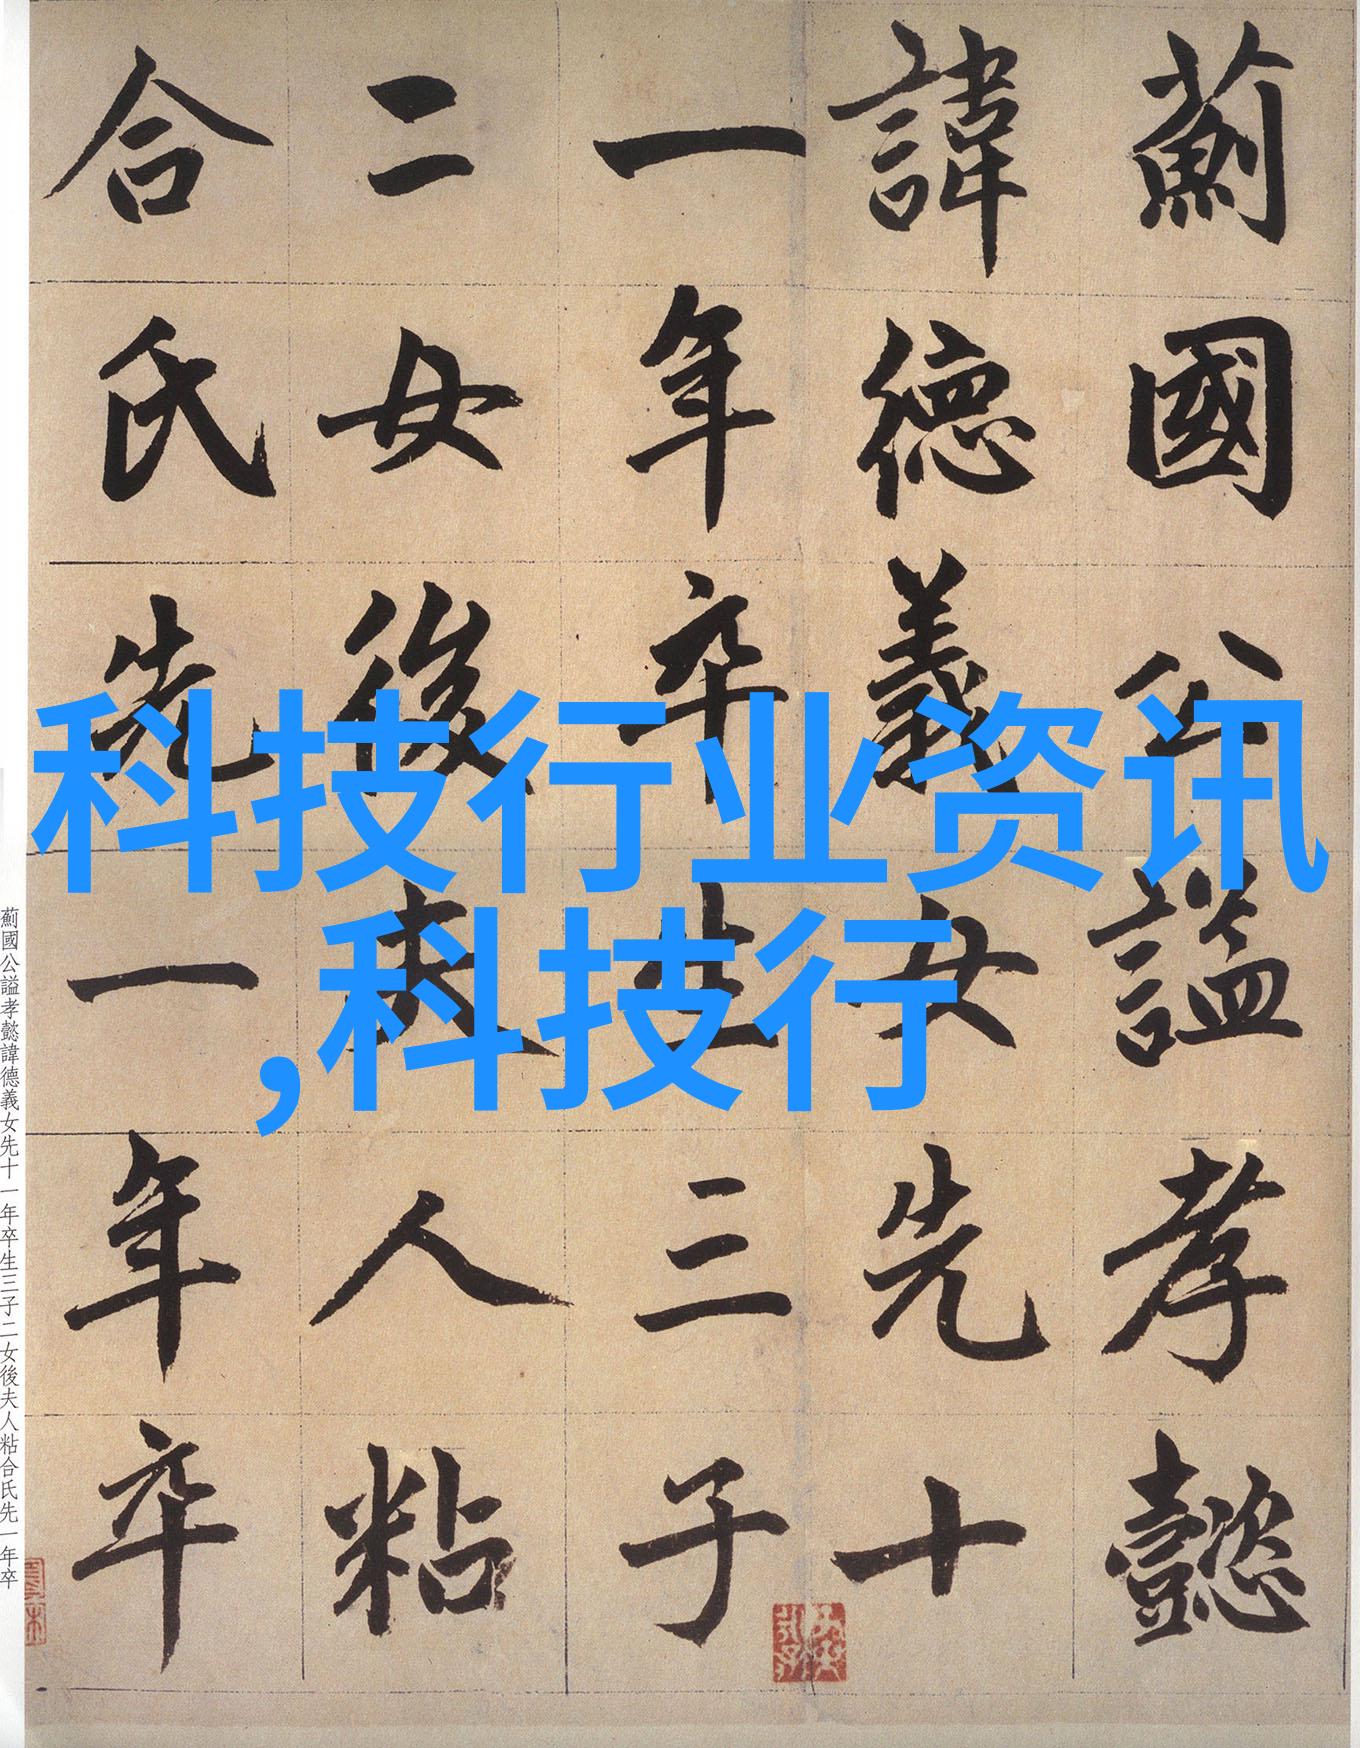 薊國公謚孝懿
諱德義女先十
一年卒生三子
二女後夫人粘
合氏先一年卒
薊國公謚孝懿諱德義女先十一年卒生三子二女後夫人粘合氏先一年卒
科技行业资讯
,科技行